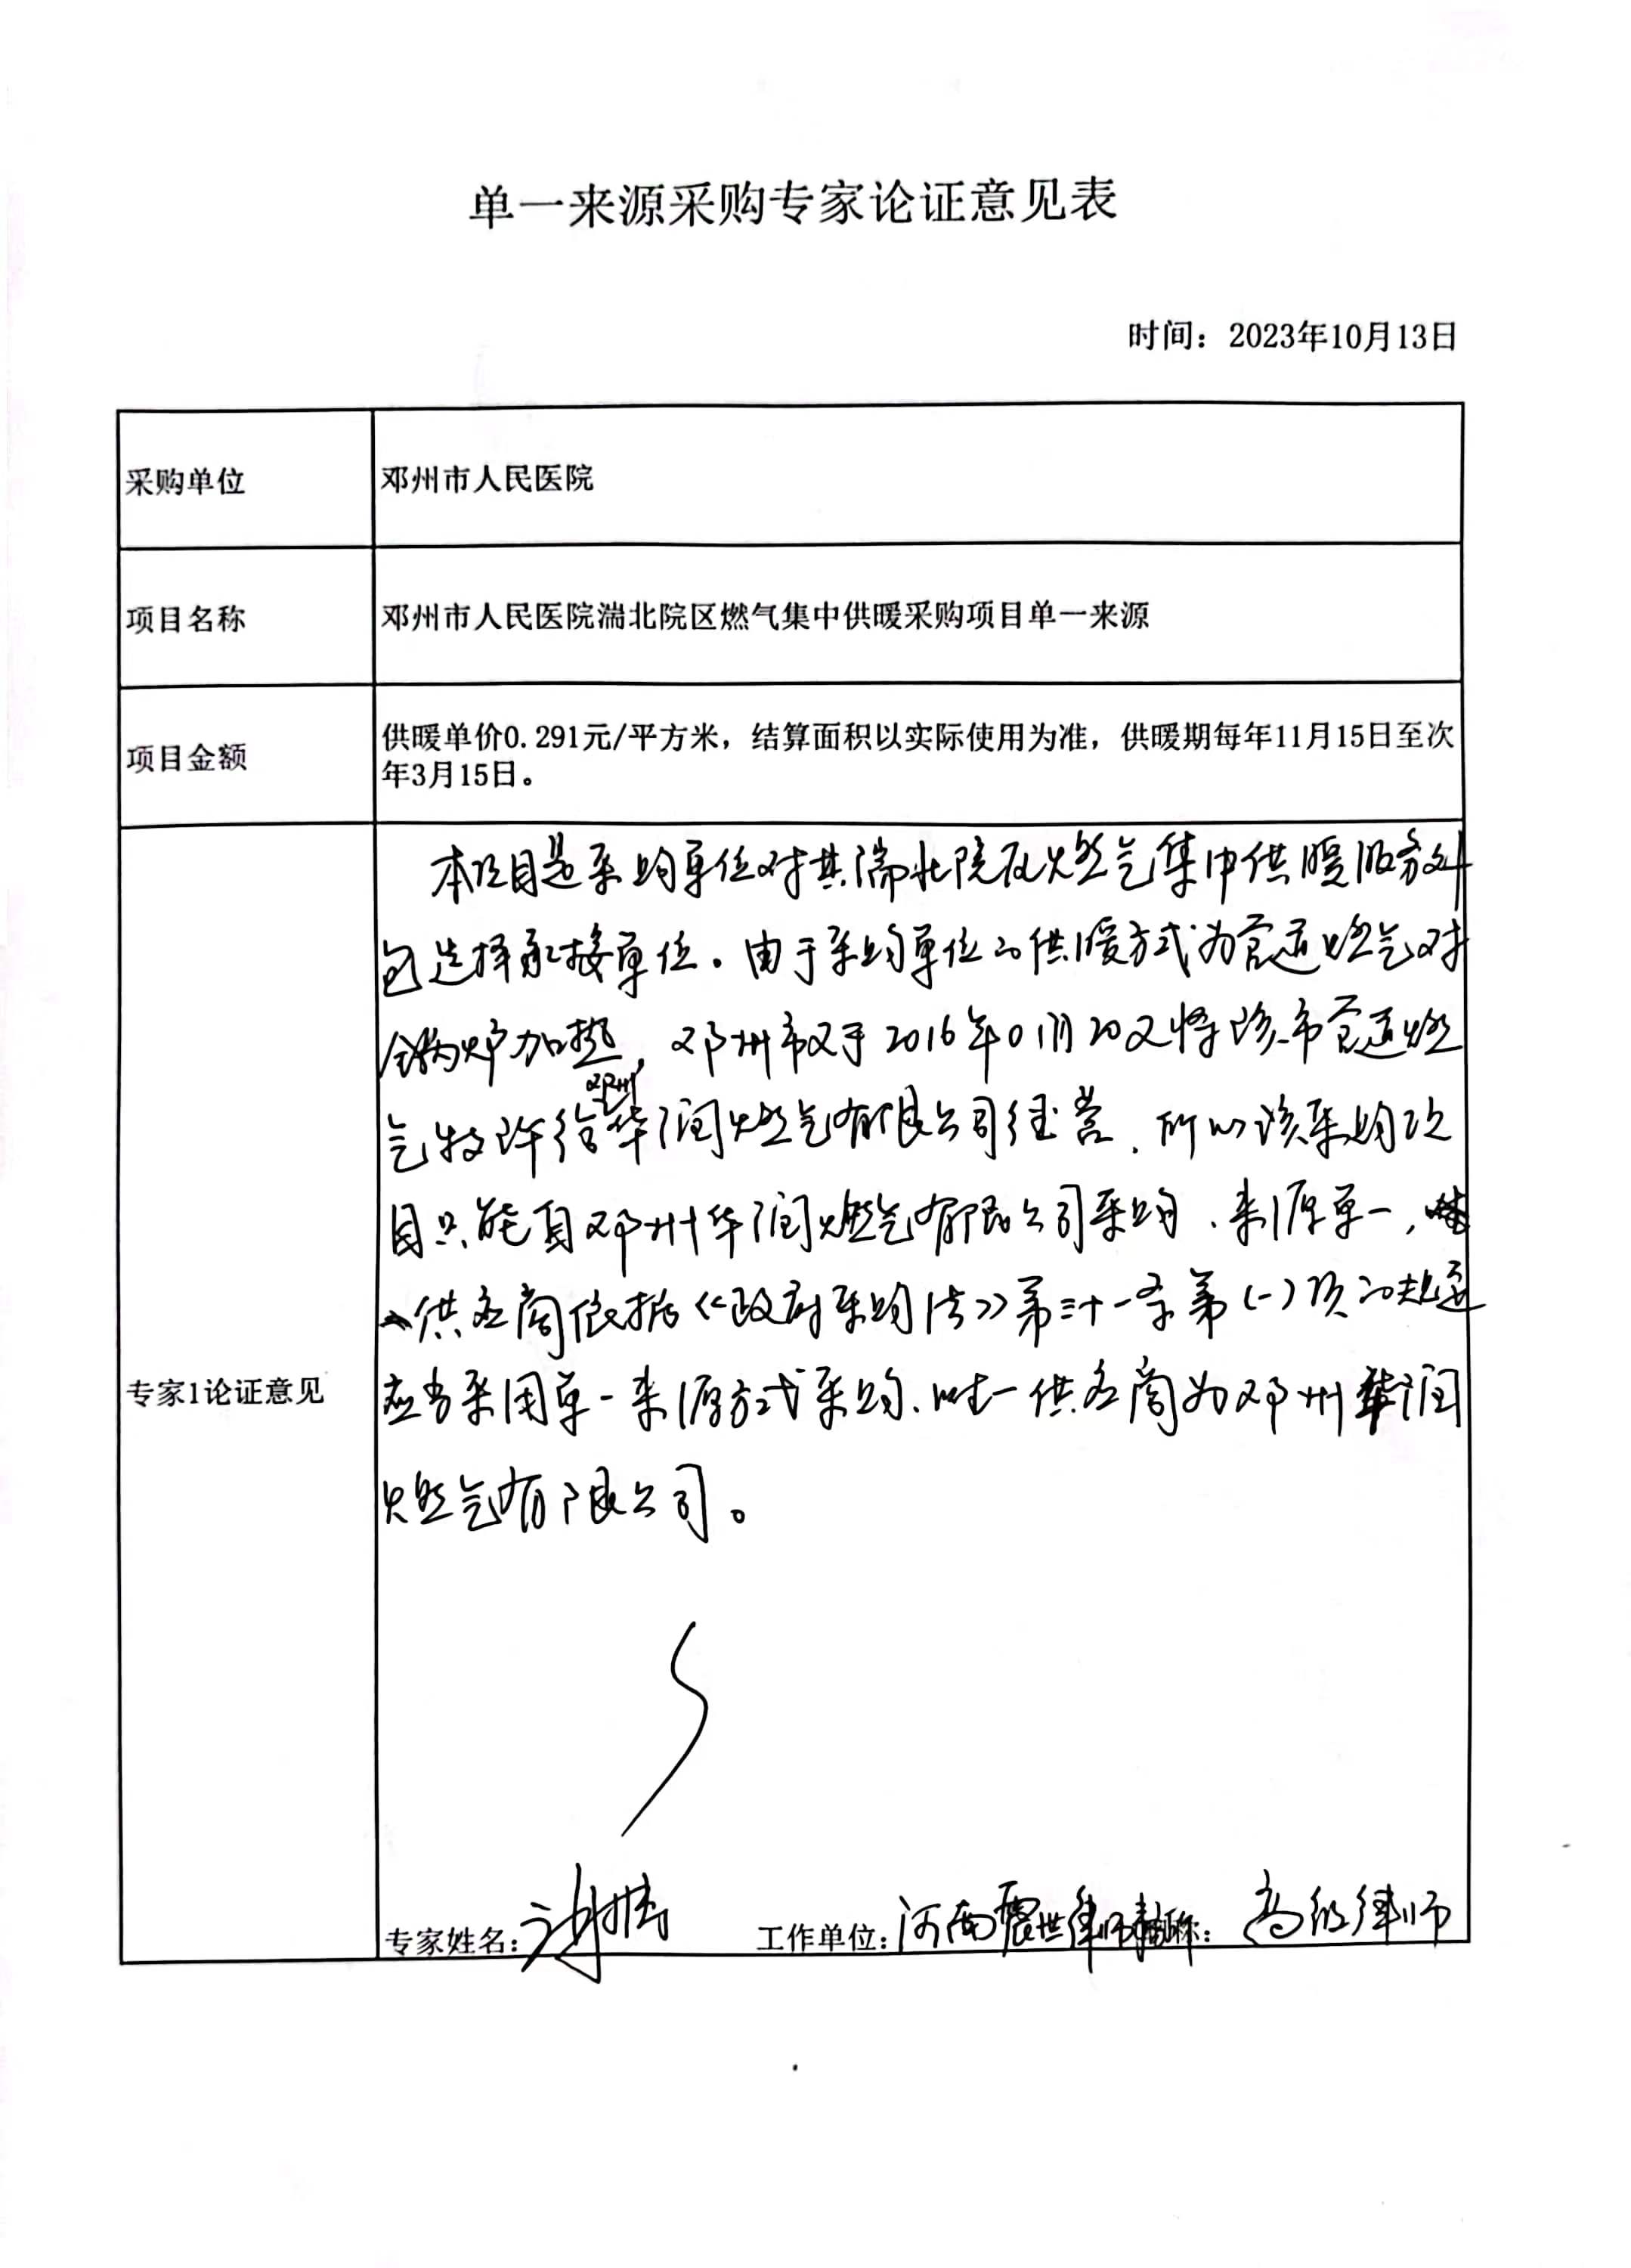 单一来源采购专家论证意见表
时间：2023年10月13日
采购单位
邓州市人民医院
项目名称
邓州市人民医院湍北院区燃气集中供暖采购项目单一来源
项目金额
供暖单价0.291元/平方米，结算面积以实际使用为准，供暖期每年11月15日至次
年3月15日。
专家1论证意见
本项目是采购单位对其湍北院区燃气集中供暖服务外
包选择承接单位。由于采购单位的供暖方式为管道燃气对
锅炉加热，邓州市又于2016年01月20又将该市管道燃
气特许给邓州华润燃气有限公司经营，所以该采购项
目只能自邓州华润燃气有限公司采购、来源单一，
供应商依据《政府采购法》第三十一条第(一)项的规定
应当采用单一来源方式采购、唯一供应商为邓州华润
燃气有限公司。
专家姓名： 工作单位：河南震世律师 职称：高级律师